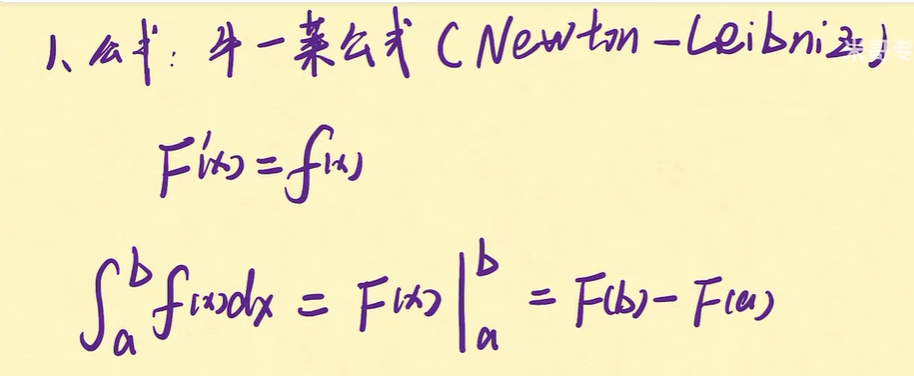 1、公式：牛一莱公式（Newton-Leibniz）
F'(x)=f(x)
∫_a^b f(x)dx = F(x)|_a^b = F(b)-F(a)